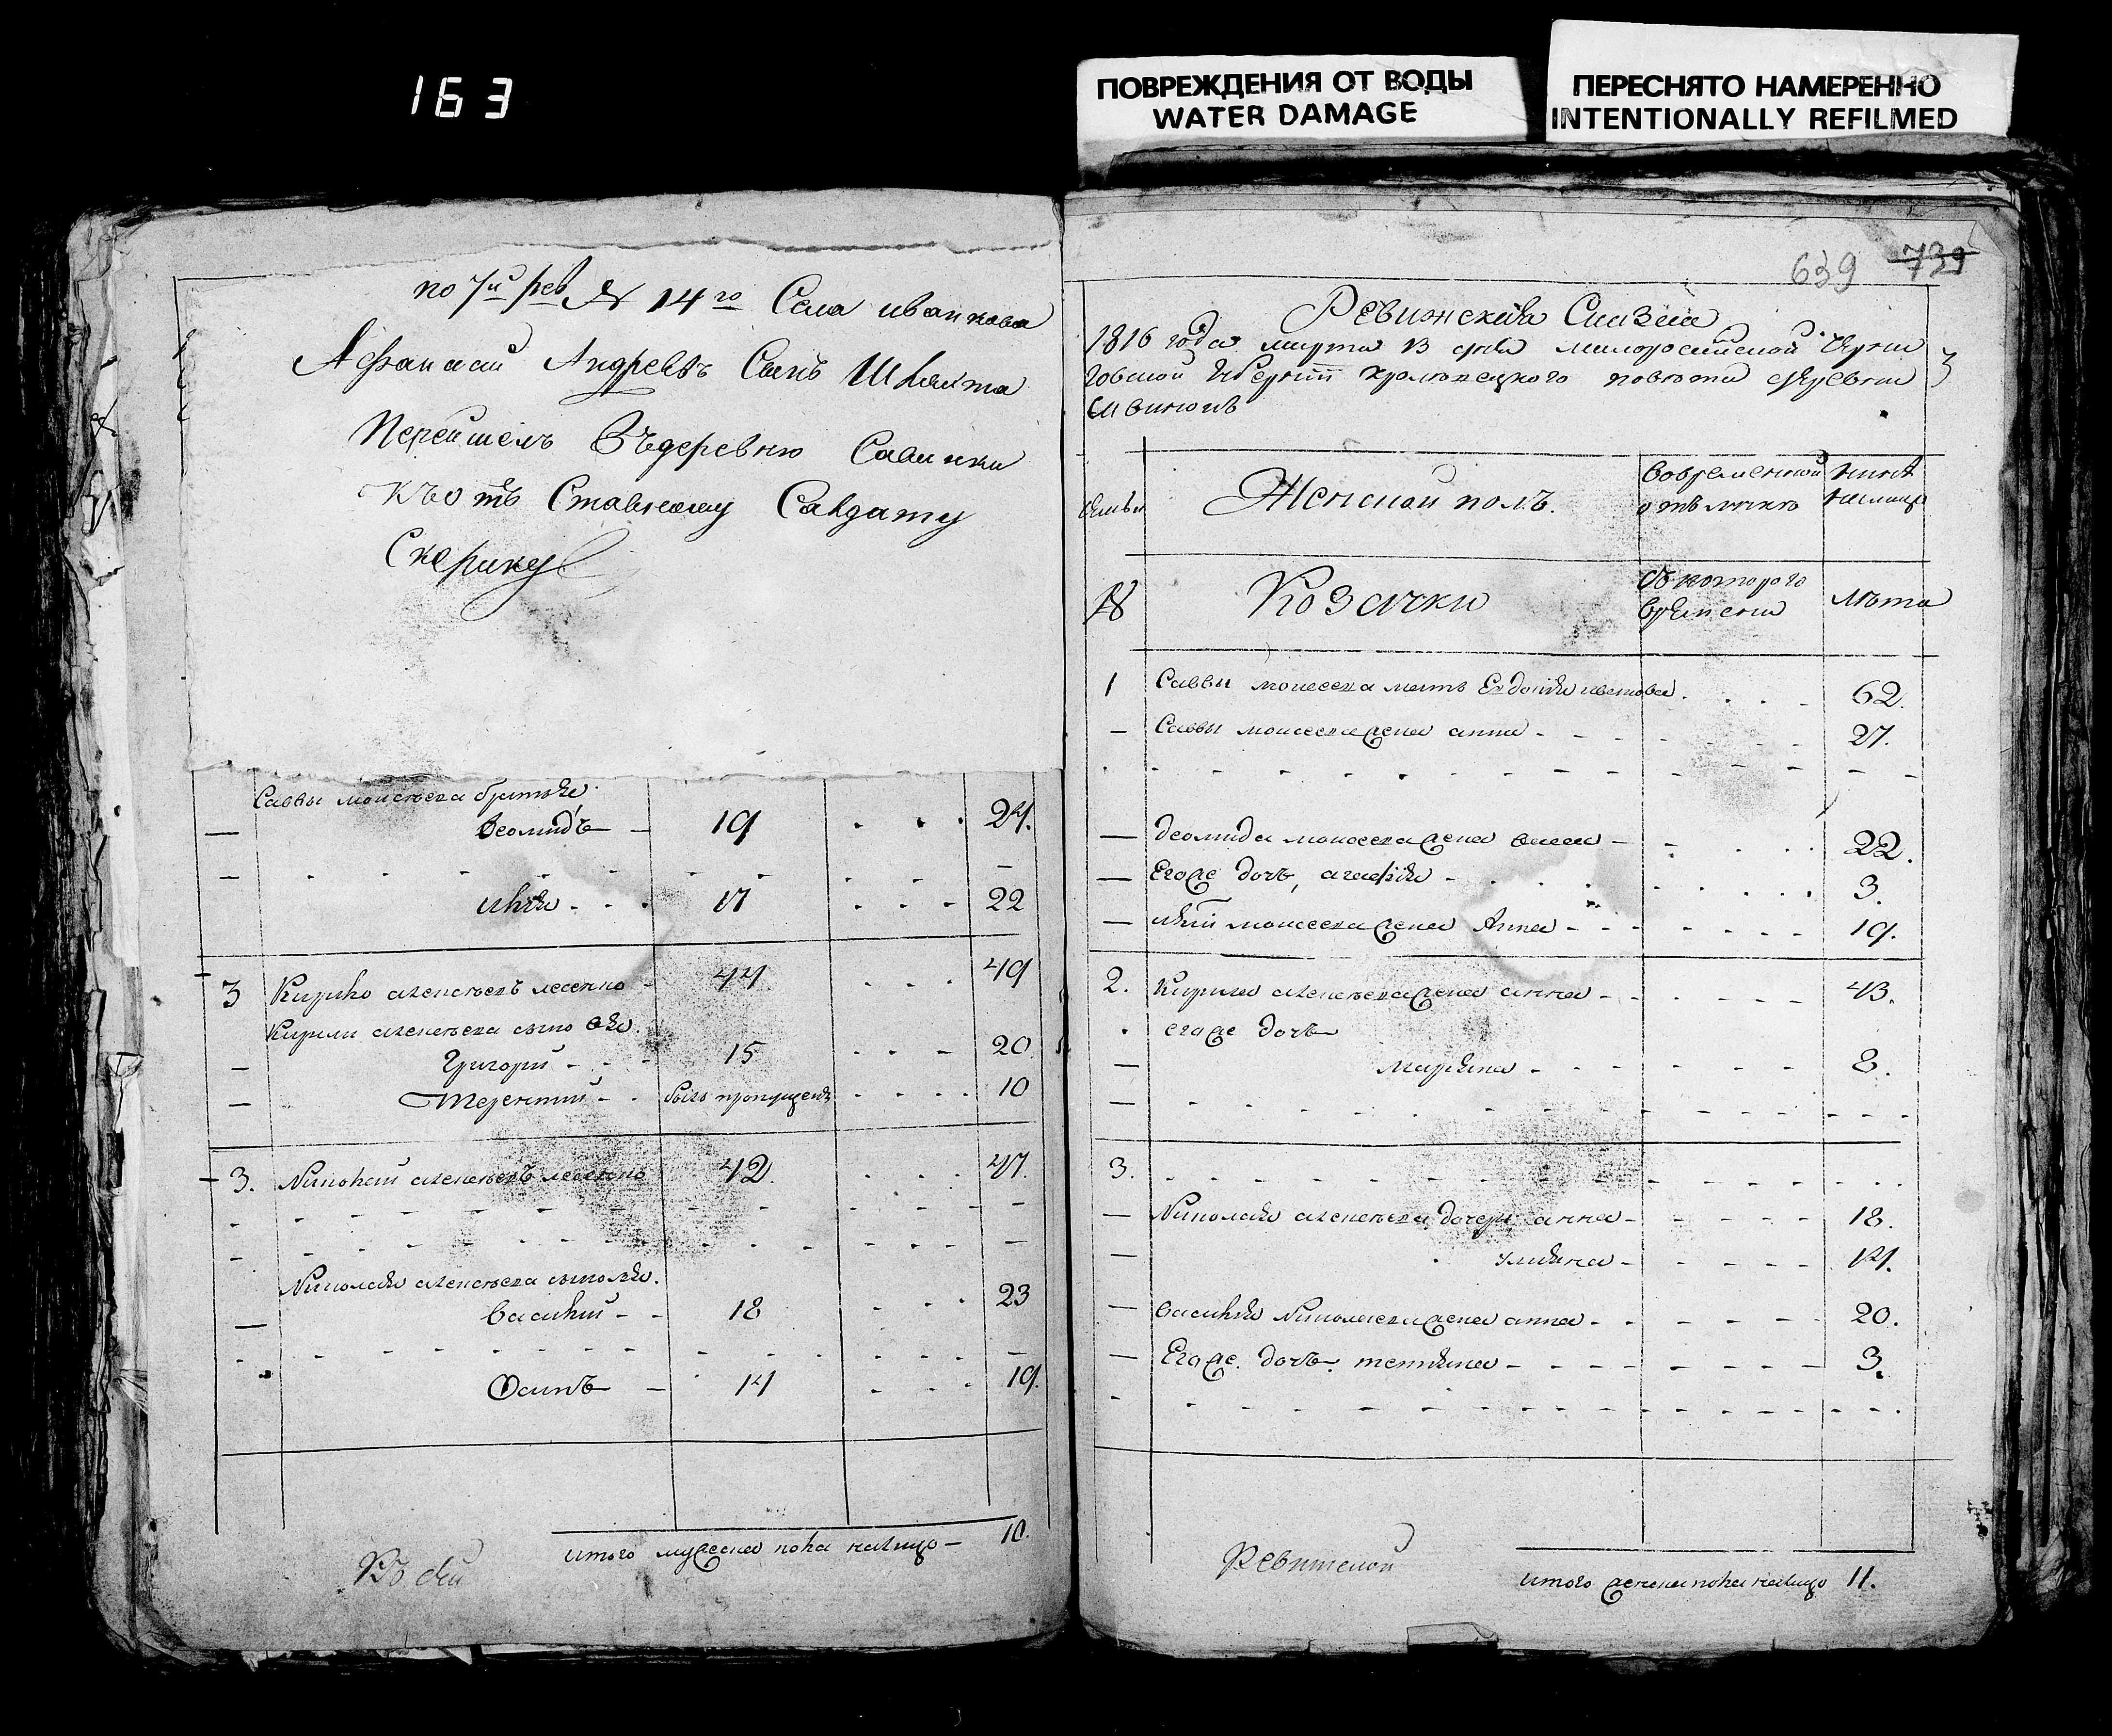 163
ПОВРЕЖДЕНИЯ ОТ ВОДЫ
WATER DAMAGE
ПЕРЕСНЯТО НАМЕРЕННО
INTENTIONALLY REFILMED
по 7й рев № 14го Села иванкова
Афанасий Андреевъ Сынъ Шклята
Перейшелъ Въдеревню Савинки
къ Ставному Салдату
Скорику
Саввы моисеева братья
Деомидъ - 19 . . . 24.
Илья - - . 17 . . . 22
3 Кирило алексеевъ лесенко - 44 . . . 49
Кирила алексеева сыновья.
Григорий - - - 15 . . - 20.
Терентий - . былъ пропущенъ . . . . 10
3. Николай алексеевъ лесенко 42. . . . 47.
Николая алексеева сыновья.
Василий - - 18 . . . 23
Осипъ - 14 . . . 19.
итого мужеска пола налицо - 10.
639 739
Ревижская Сказка
1816 года марта 13 дня малоросийской Черни
говской Губернии кролевецкого повета деревни
Женской полъ.
вовременной
отлучке
ныне
налицо
№
Козачки
Съ которого
времени
Лета
1 Саввы моисеева мать Евдокия . . . . 62.
- Саввы моисеева жена анна - - - 27.
- деомида моисеева жена - - . . . 22.
- Егоже дочь, агафия - . . . 3.
- моисеева жена Анна - - - 19.
2. Кирила алексеева жена анна - - - 43.
егоже дочь
- марьяна - - - 8.
3.
- Николая алексеева дочери анна - - - 18.
- ульяна - - - 14.
- василия Николаева жена анна - - - 20.
- Егоже дочь татьяна - - - 3.
итого женска пола налицо 11.